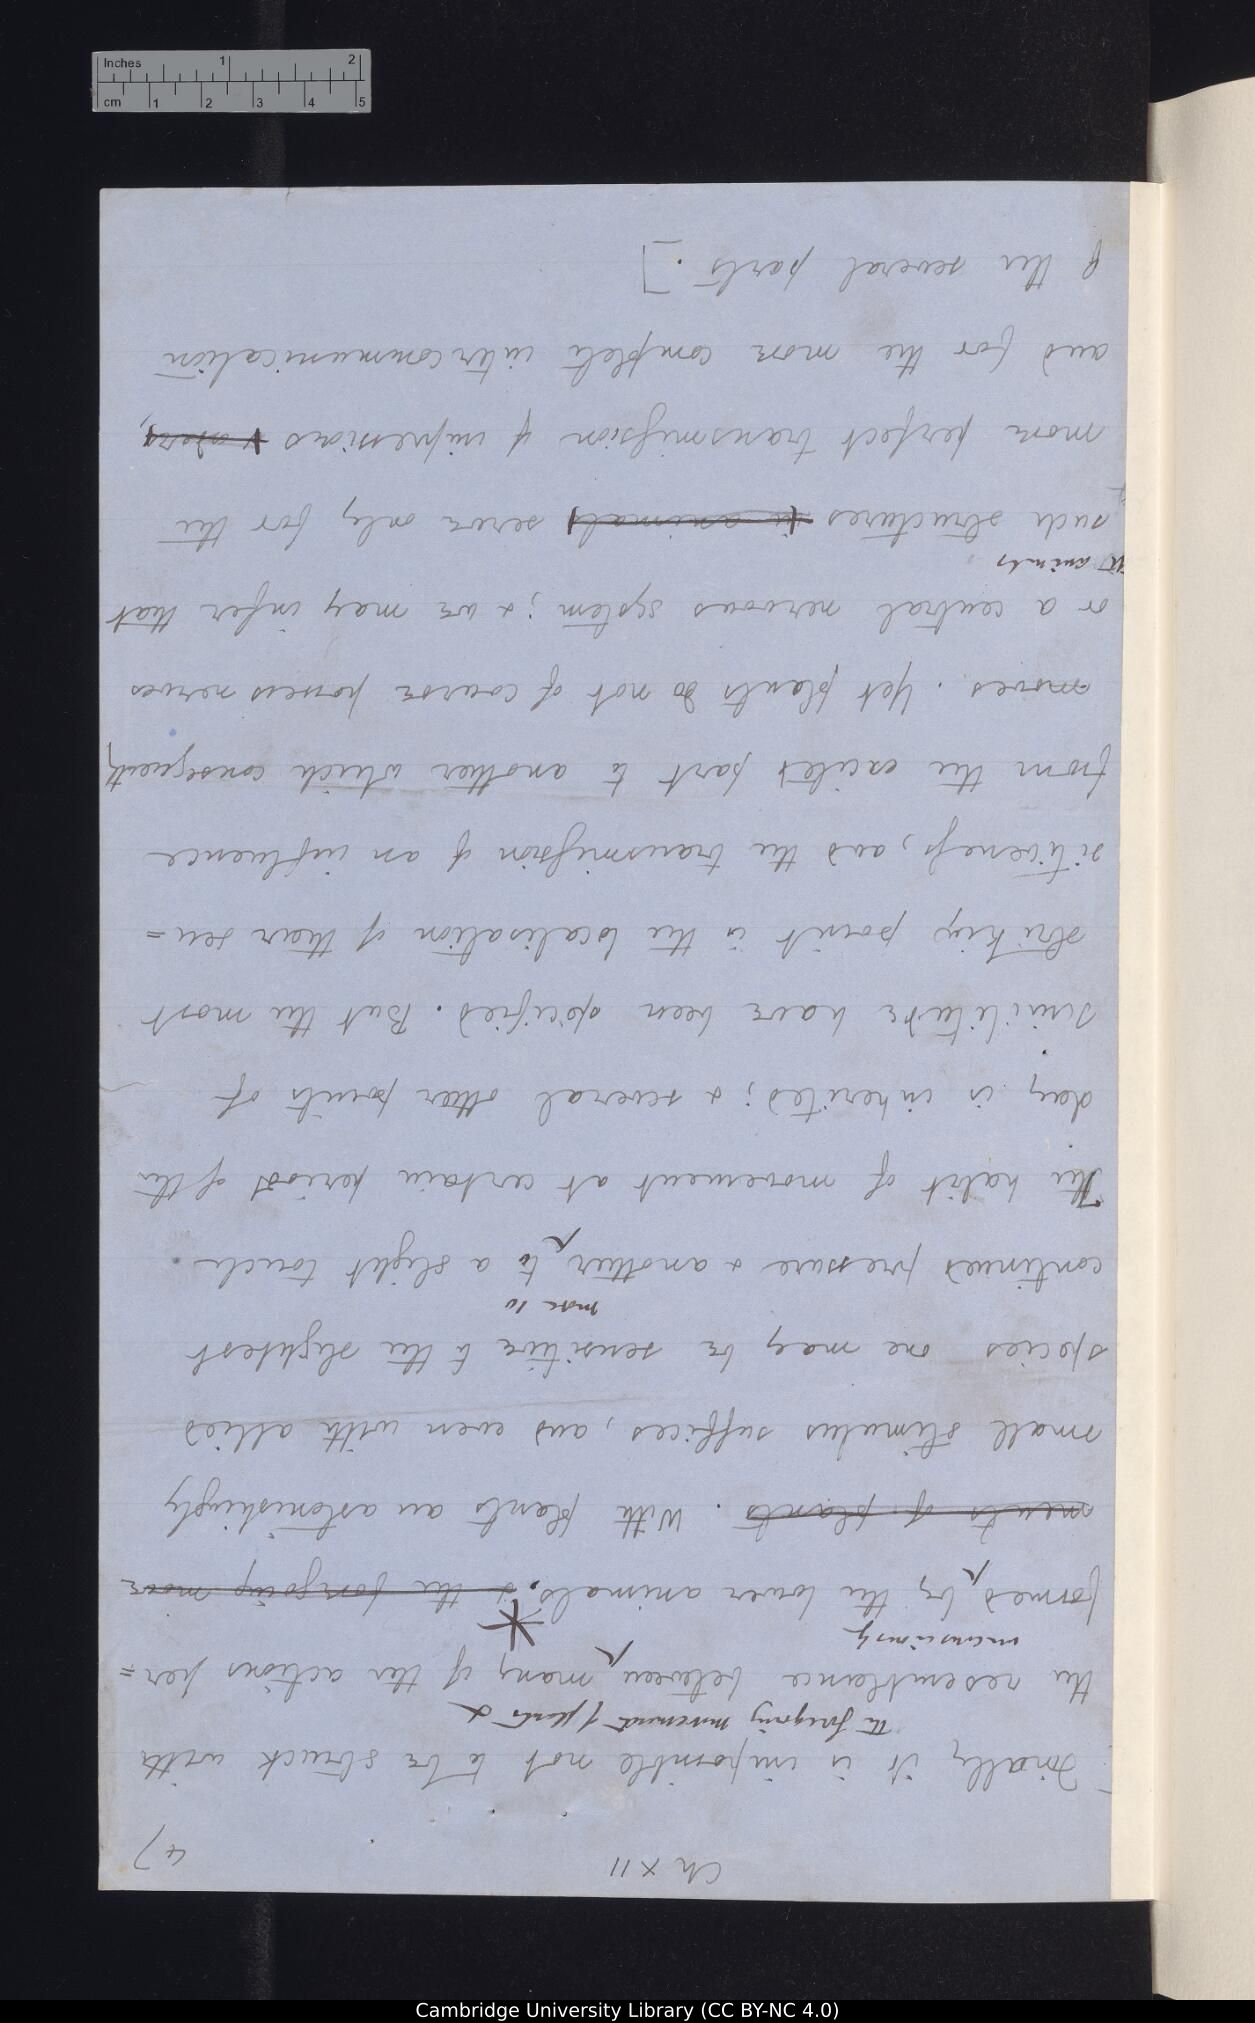 Ch XII
47
Finally it is impossible not to be struck with
the foregoing movement of plants &
the resemblance between many of the actions per=
unconsciously
formed by the lower animals. & the foregoing move
ments of plants. With plants an astonishingly
small stimulus suffices, and even with allied
species one may be sensitive to the slightest
more to
continued pressure & another to a slight touch.
The habit of movement at certain periods of the
day is inherited; & several other points of
similitude have been specified. But the most
striking point is the localisation of their sen=
sitiveness, and the transmission of an influence
from the excited part to another which consequently
moves. Yet plants do not of course possess nerves
or a central nervous system; & we may infer that
with animals
such structures in animals serve only for the
more perfect transmission of impressions
and for the more complete intercommunication
of the several parts.]
Inches 1 2
cm 1 2 3 4 5
Cambridge University Library (CC BY-NC 4.0)